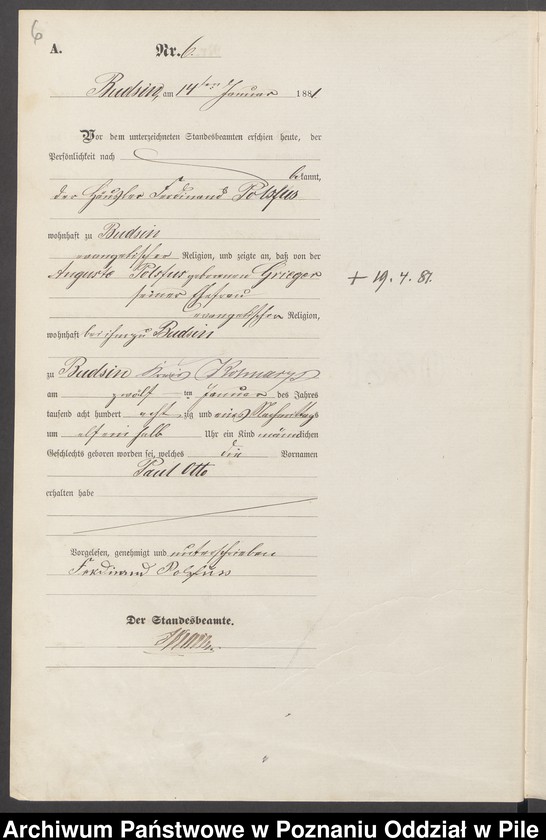 6
A. Nr. 6.
Budsin, am 14ten Januar 1881.
Vor dem unterzeichneten Standesbeamten erschien heute, der
Persönlichkeit nach
bekannt,
der Häusler Ferdinand Polzfuss
wohnhaft zu Budsin
evangelischer Religion, und zeigte an, daß von der
Auguste Polzfuss geborenen Grieger
seiner Ehefrau
evangelischer Religion,
wohnhaft bei ihm zu Budsin
zu Budsin Kreis Kolmar
am zwölften Januar des Jahres
tausend acht hundert achtzig und eins Nachmittags
um elf ein halb Uhr ein Kind männlichen
Geschlechts geboren worden sei, welches die Vornamen
Paul Otto
erhalten habe
Vorgelesen, genehmigt und unterschrieben
Ferdinand Polzfuss
Der Standesbeamte.
+ 19.4.81.
Archiwum Państwowe w Poznaniu Oddział w Pile